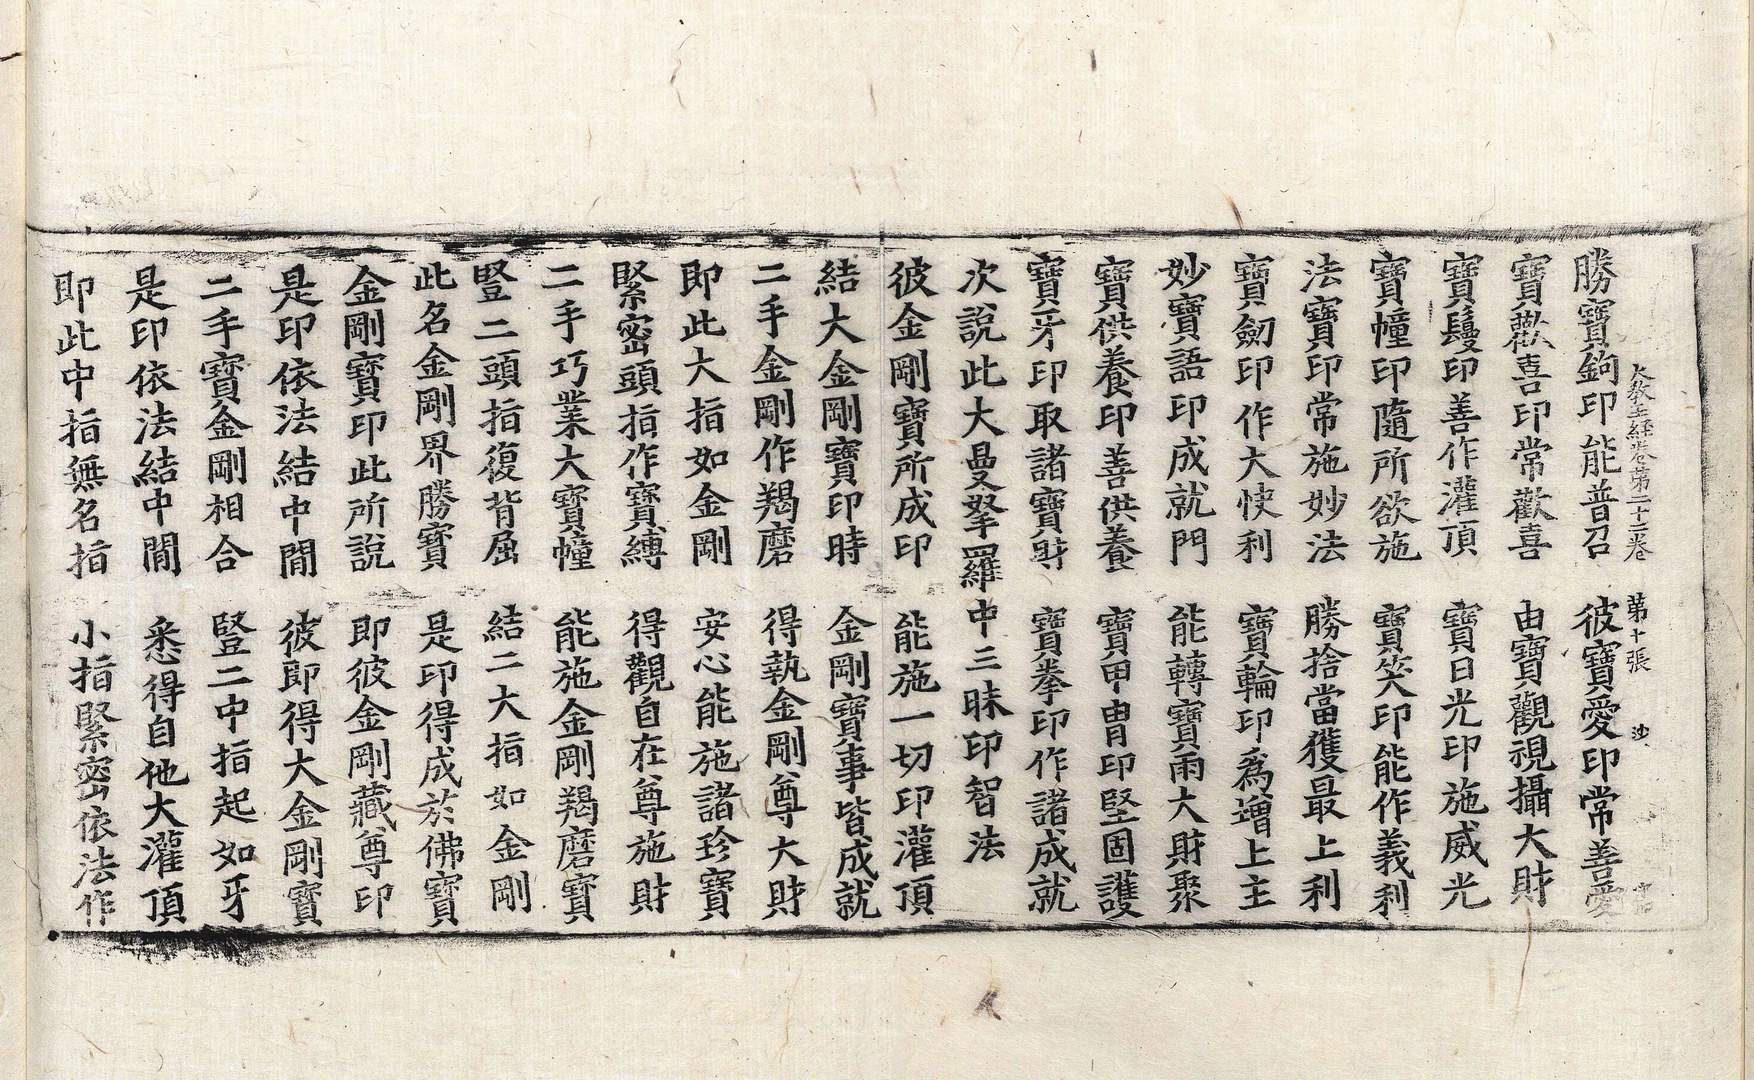 大教王經卷第二十二卷 第十張 沙
勝寶鉤印能普召 彼寶愛印常善愛
寶歡喜印常歡喜 由寶觀視攝大財
寶鬘印善作灌頂 寶日光印施威光
寶幢印隨所欲施 寶笑印能作義利
法寶印常施妙法 勝捨當獲最上利
寶劒印作大快利 寶輪印爲增上主
妙寶語印成就門 能轉寶雨大財聚
寶供養印善供養 寶甲冑印堅固護
寶牙印取諸寶財 寶拳印作諸成就
次說此大曼拏羅中三昧印智法
彼金剛寶所成印 能施一切印灌頂
結大金剛寶印時 金剛寶事皆成就
二手金剛作羯磨 得執金剛尊大財
即此大指如金剛 安心能施諸珍寶
緊密頭指作寶縛 得觀自在尊施財
二手巧業大寶幢 能施金剛羯磨寶
豎二頭指復背屈 結二大指如金剛
此名金剛界勝寶 是印得成於佛寶
金剛寶印此所說 即彼金剛藏尊印
是印依法結中間 彼即得大金剛寶
二手寶金剛相合 豎二中指起如牙
是印依法結中間 悉得自他大灌頂
即此中指無名指 小指緊密依法作